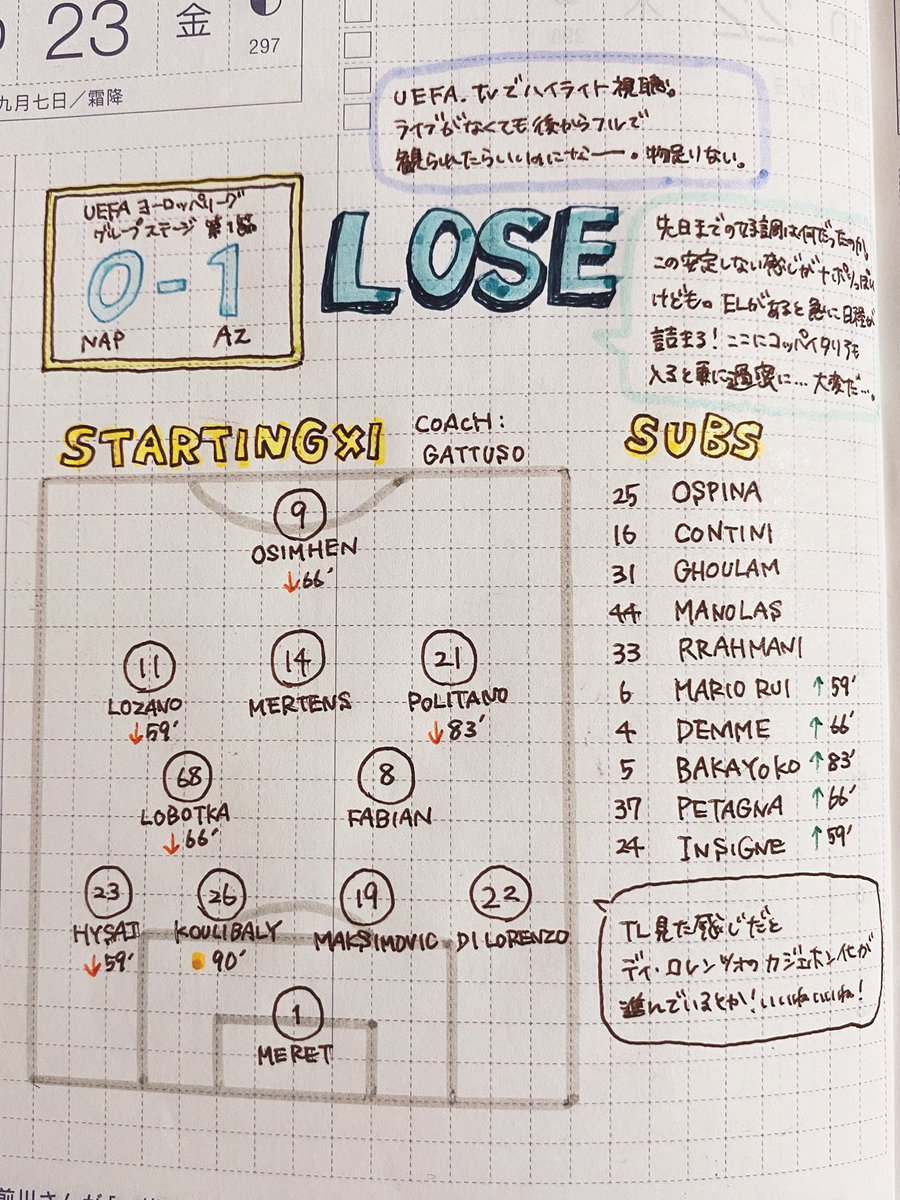 23 金 297
九月七日／霜降
UEFA.tvでハイライト視聴。
ライブがなくても後からフルで
観られたらいいのになー。物足りない。
UEFA ヨーロッパリーグ
グループステージ 第1節
0-1
NAP AZ
LOSE
先日までの好調は何だったのか。
この安定しない感じがナポリっぽい
けども。ELがあると急に日程が
詰まる！ここにコッパイタリアも
入ると更に過密に…大変だ…。
STARTING XI
COACH:
GATTUSO
9
OSIMHEN
↓66′
11
LOZANO
↓59′
14
MERTENS
21
POLITANO
↓83′
68
LOBOTKA
↓66′
8
FABIAN
23
HYSAJ
↓59′
26
KOULIBALY
90′
19
MAKSIMOVIC
22
DI LORENZO
1
MERET
SUBS
25 OSPINA
16 CONTINI
31 GHOULAM
44 MANOLAS
33 RRAHMANI
6 MARIO RUI ↑59′
4 DEMME ↑66′
5 BAKAYOKO ↑83′
37 PETAGNA ↑66′
24 INSIGNE ↑59′
TL見た感じだと
ディ・ロレンツォのカジェホン化が
進んでいるとか！いいねいいね！